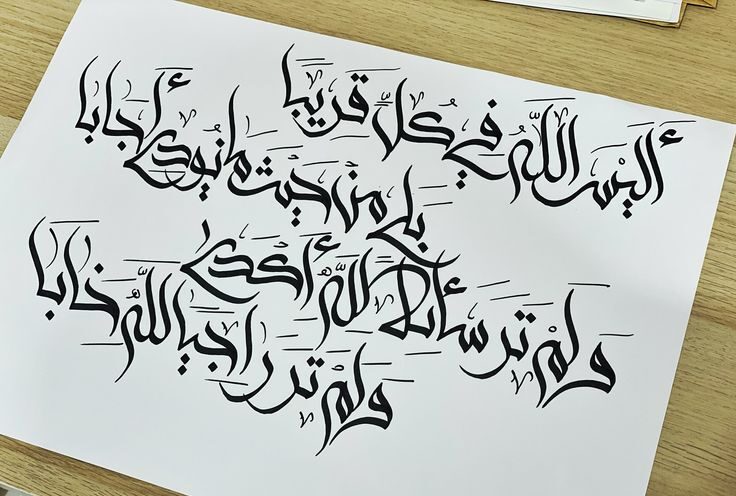 أَلَيْسَ اللَّهُ في كُلِّ قَريبًا
بلى من حَيْثُ ما نُودي أَجابا
ولمْ تَرَ سائلًا للَّهِ أَكْدى
ولمْ تَرَ راجيًا للَّهِ خابا